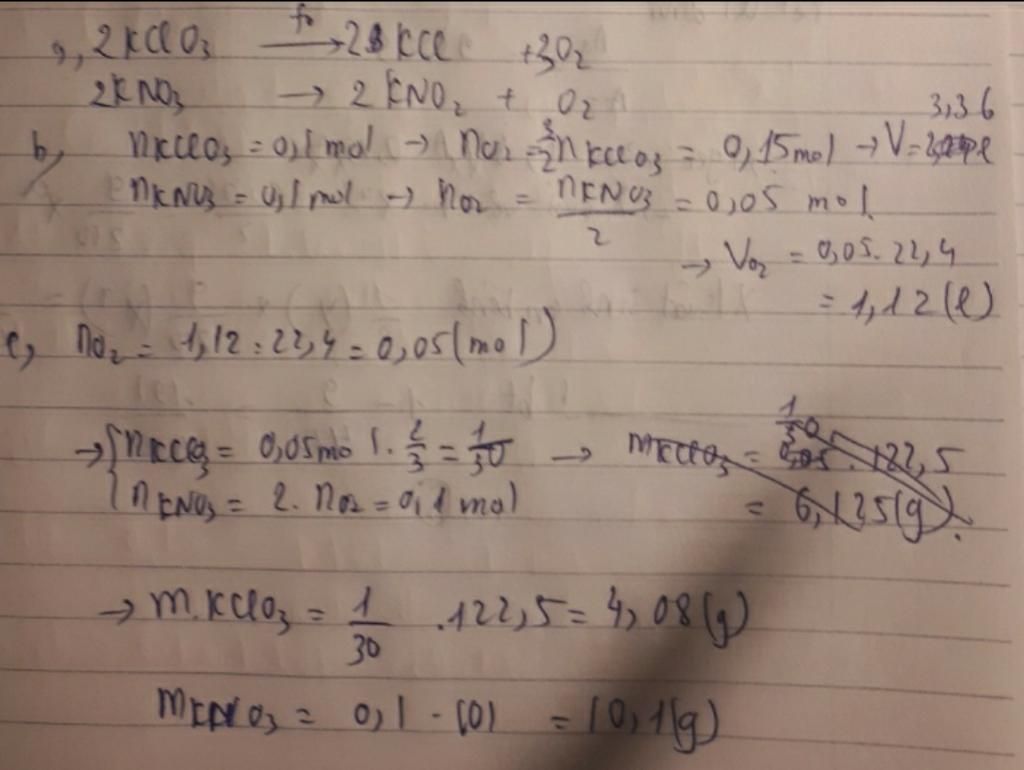 a, 2KClO₃ —t°→ 2KCl + 3O₂
2KNO₃ → 2KNO₂ + O₂
b, nKClO₃ = 0,1 mol → nO₂ = 3/2 nKClO₃ = 0,15 mol → V = 3,36 l
nKNO₃ = 0,1 mol → nO₂ = nKNO₃/2 = 0,05 mol.
→ VO₂ = 0,05. 22,4
= 1,12 (l)
c, nO₂ = 1,12 : 22,4 = 0,05 (mol)
→ { nKClO₃ = 0,05 mol . 2/3 = 1/30 → mKClO₃ = 1/30 . 122,5
{ nKNO₃ = 2. nO₂ = 0,1 mol = 6,125 (g).
→ m.KClO₃ = 1/30 .122,5 = 4,08 (g)
mKNO₃ = 0,1 . 101 = 10,1 (g)